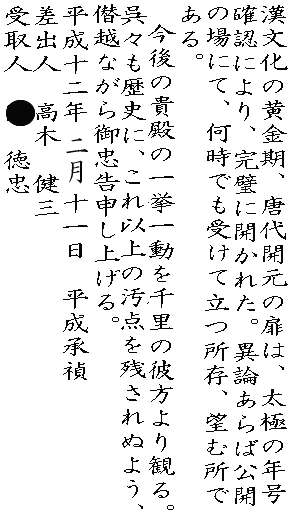 漢文化の黄金期、唐代開元の扉は、太極の年号
確認により、完璧に開かれた。異論あらば公開
の場にて、何時でも受けて立つ所存、望む所で
ある。
今後の貴殿の一挙一動を千里の彼方より観る。
呉々も歴史に、これ以上の汚点を残されぬよう、
僭越ながら御忠告申し上げる。
平成十二年 二月十一日 平成承禎
差出人 高木 健三
受取人 ● 徳忠